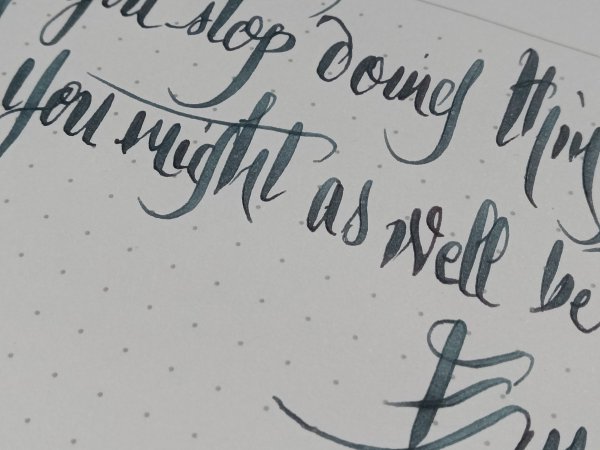 you stop doing thing
you might as well be